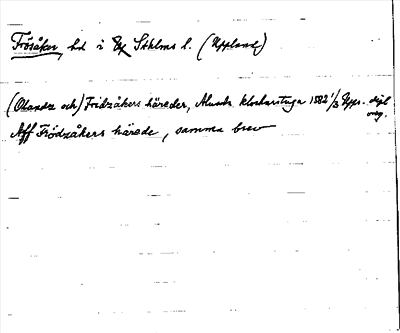 Frösåker, hd i Sthlms l. (Uppland)
(Olandz och) Frödzåkers häreder, Alunda klockarstuga 1582 1/3 Upps. digl oreg.
Aff Frödzåkers härede, samma brev